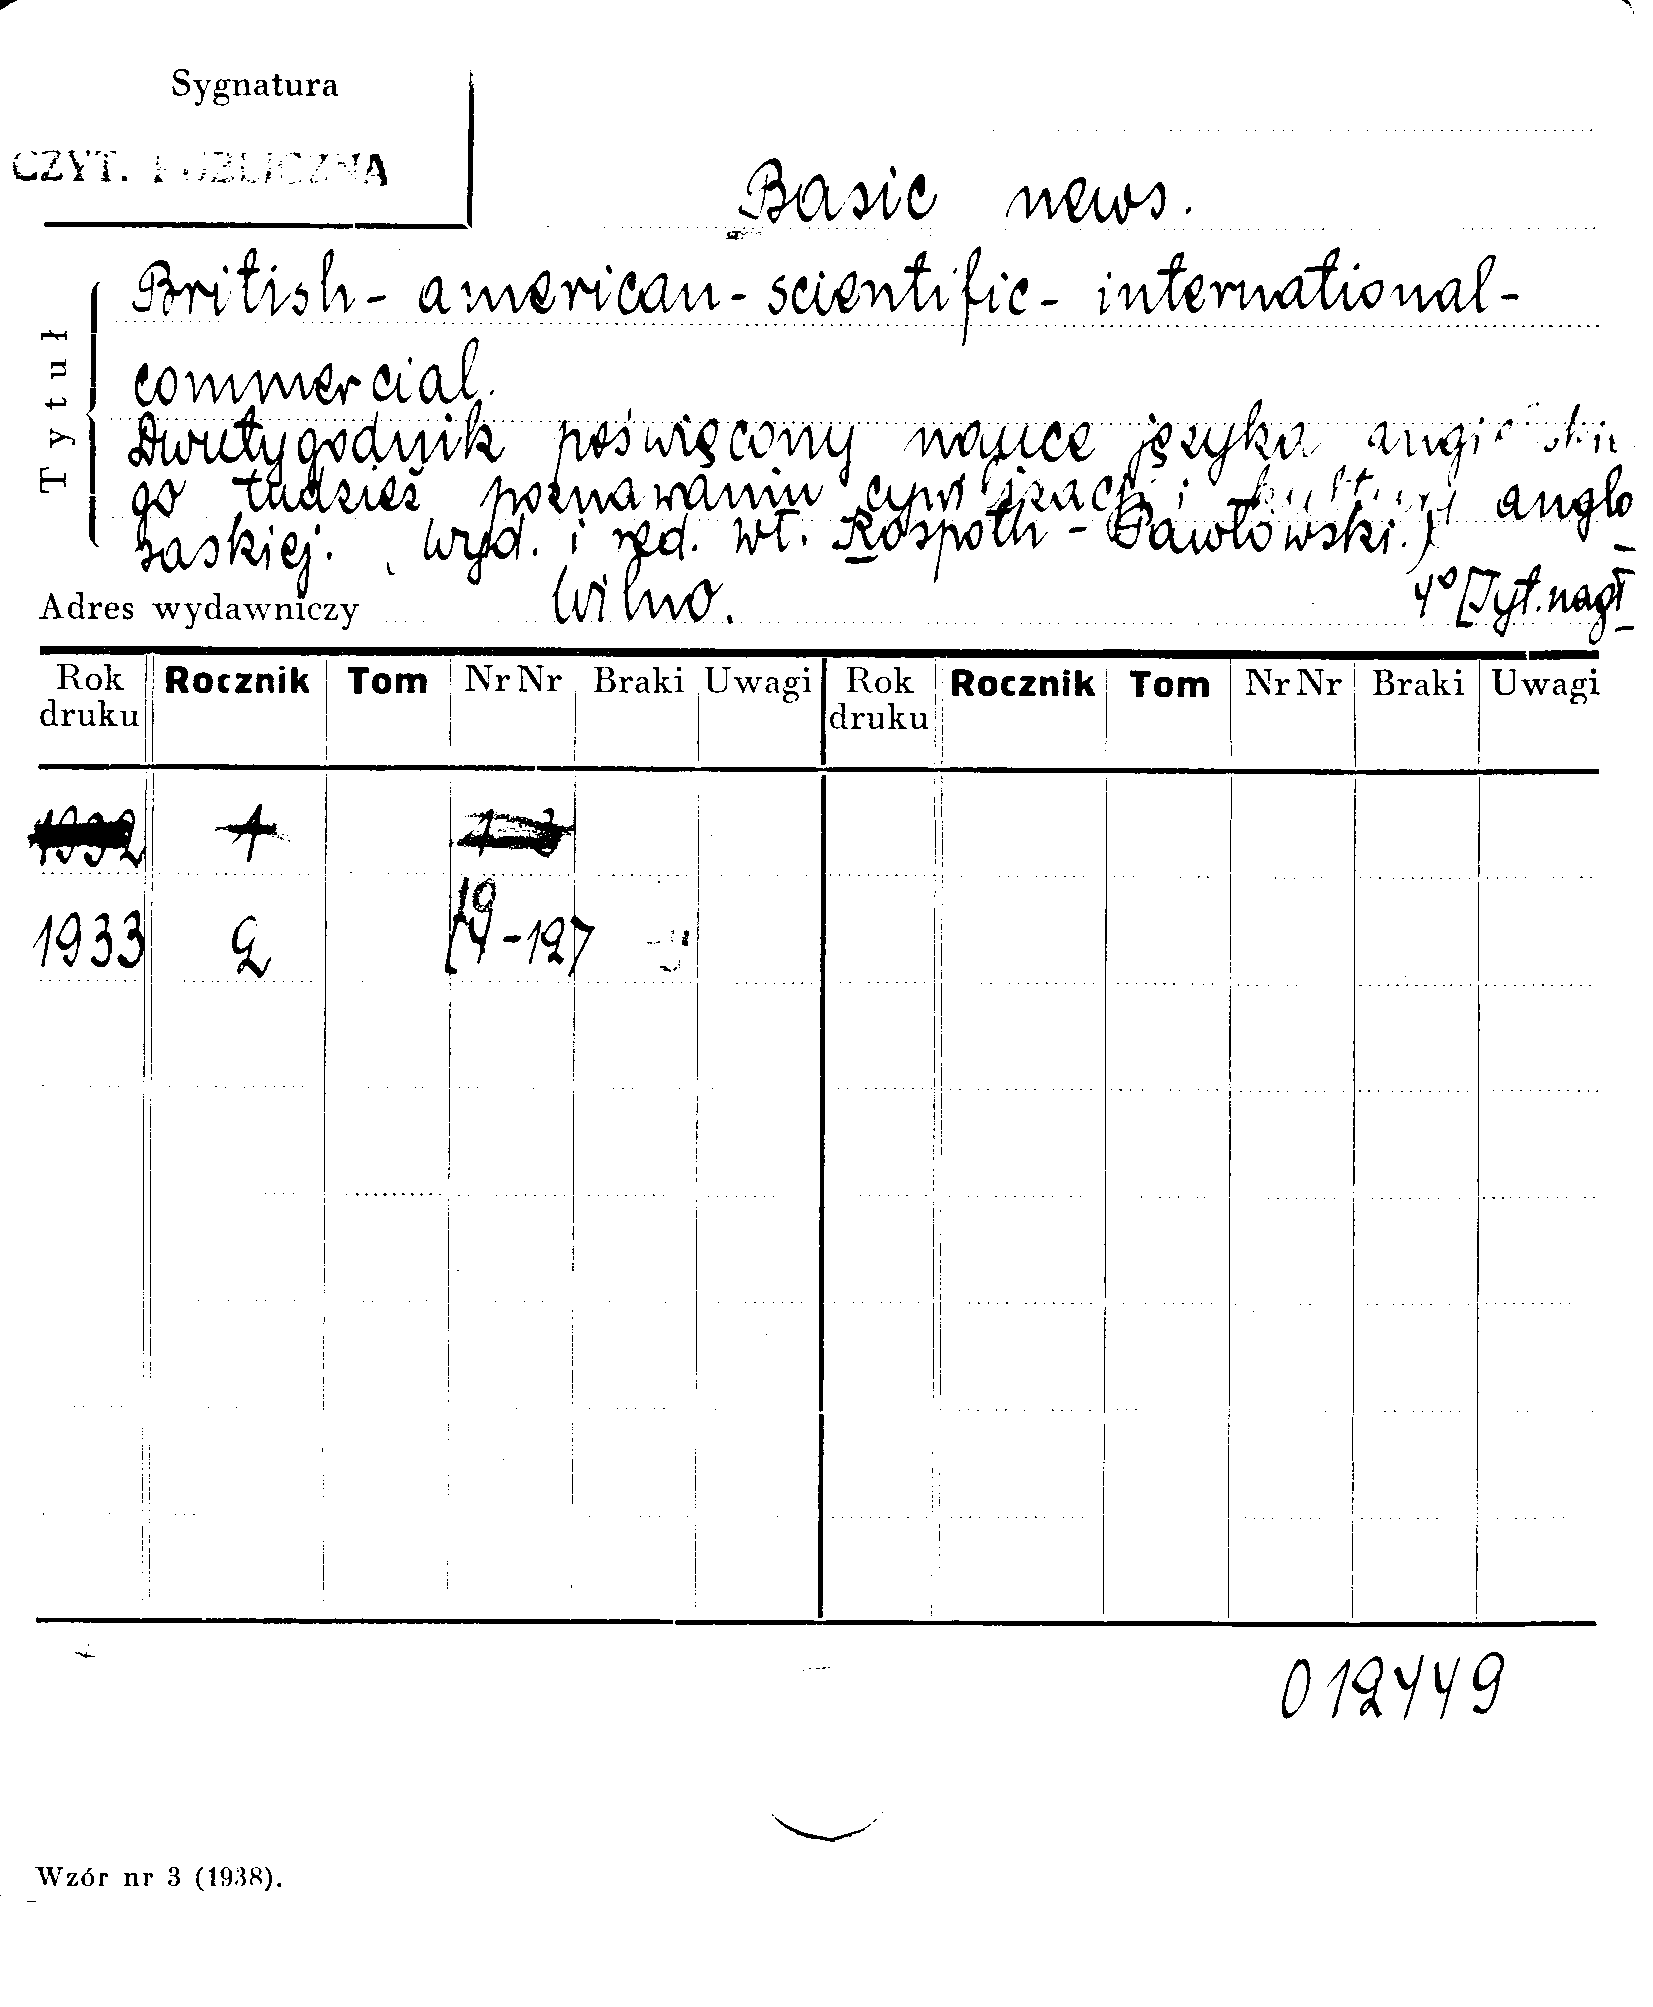 Sygnatura
CZYT. PUBLICZNA
Basic news.
Tytuł
British - american - scientific - international -
commercial.
Dwutygodnik poświęcony nauce języka angielskie
go tudzież poznawaniu cywilizacji i kultury anglo
saskiej. (wyd. i red. Wł. Rospoth - Pawłowski.)
Adres wydawniczy Wilno. 4° [Tyt. nagł
Rok druku Rocznik Tom Nr Nr Braki Uwagi Rok druku Rocznik Tom Nr Nr Braki Uwagi
1932 1
19
1933 2 -127
012449
Wzór nr 3 (1938).